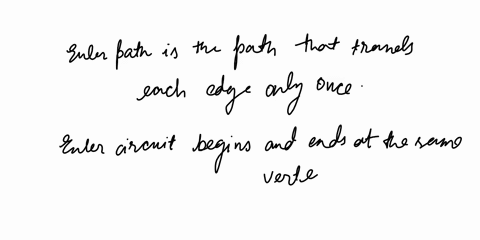 Euler path is the path that travels
each edge only once.
Euler circuit begins and ends at the same
verte